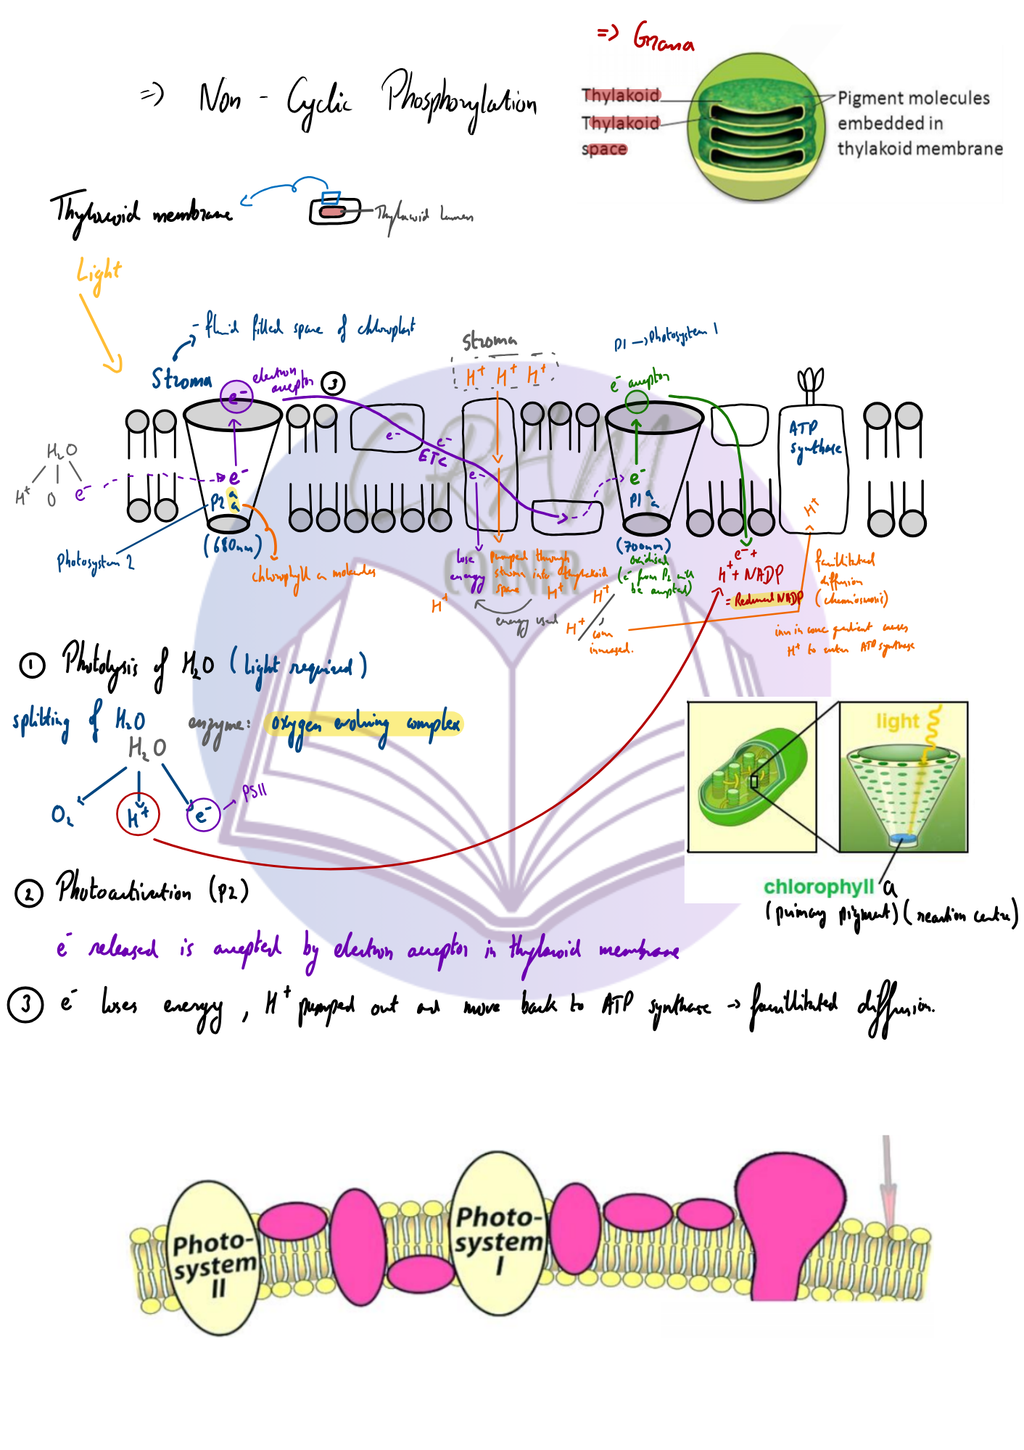 => Grana
=> Non - Cyclic Phosphorylation
Thylakoid
Thylakoid
space
Pigment molecules
embedded in
thylakoid membrane
Thylakoid membrane
Thylakoid lumen
Light
- fluid filled space of chloroplast
Stroma
electron
aceptor
3
Stroma
H+ H+ H+
P1 → Photosystem 1
e- aceptor
e-
ATP
synthase
H2O
H+ O e-
e-
P2 a
a
(680nm)
Photosystem 2
chlorophyll a molecules
e- e-
ETC
e-
e-
P1 a
a
(700nm)
H+
lose
energy
pumped through
stroma into thylakoid
space
H+ H+
energy used
H+
H+
conc
increased.
oxidised
(e- from P2 will
be accepted)
e- +
H+ + NADP
= Reduced NADP
facillitated
diffusion
(chemiosmosis)
incr in conc gradient causes
H+ to enter ATP synthase
CRAM
CORNER
① Photolysis of H2O (light required)
splitting of H2O enzyme: oxygen evolving complex
H2O
O2 H+ e- PSII
light
chlorophyll a
(primary pigment) (reaction centre)
② Photoactivation (P2)
e- released is accepted by electron aceptor in thylakoid membrane
③ e- loses energy, H+ pumped out and move back to ATP synthase → facillitated diffusion.
Photo-
system
II
Photo-
system
I